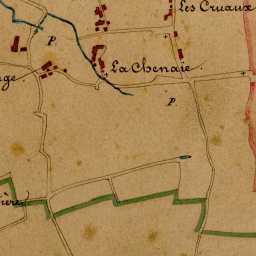 Les Cruaux
P.
La Chenaie
nge
P.
ière